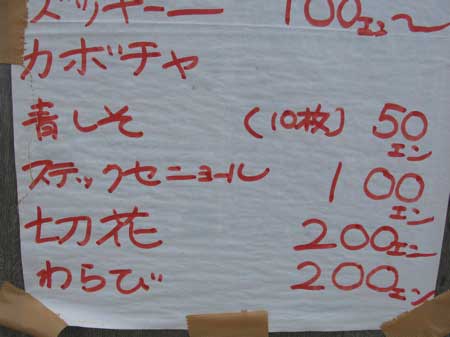 ズッキーニ 100エン〜
カボチャ
青しそ (10枚) 50エン
スティックセニョール 100エン
切花 200エン
わらび 200エン